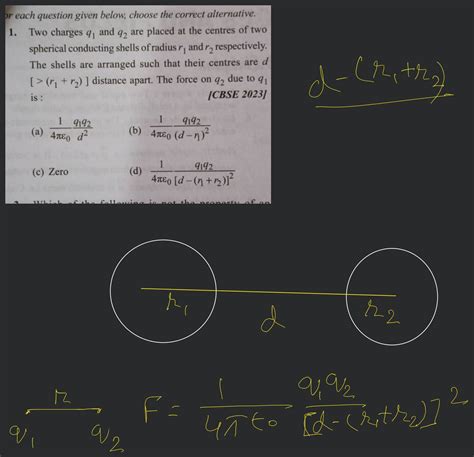 or each question given below, choose the correct alternative.
1. Two charges q₁ and q₂ are placed at the centres of two
spherical conducting shells of radius r₁ and r₂ respectively.
The shells are arranged such that their centres are d
[ > (r₁ + r₂) ] distance apart. The force on q₂ due to q₁
is : [CBSE 2023]
(a) 1/4πε₀ q₁q₂/d² (b) 1/4πε₀ q₁q₂/(d – r₁)²
(c) Zero (d) 1/4πε₀ q₁q₂/[d – (r₁ + r₂)]²
2. Which of the following is not the property of
d-(r₁+r₂)
r₁ d r₂
r
q₁ q₂
F = 1/4πε₀ q₁q₂/[d-(r₁+r₂)]²